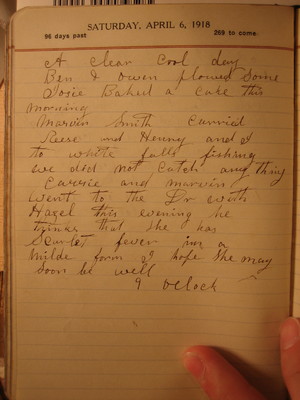 SATURDAY, APRIL 6, 1918
96 days past
269 to come
A clear cool day
Ben & Owen plowed some
Josie Baked a Cake this
morning
Marvin Smith Carried
Reese and Henny and I
to white falls fishing
we did not Catch any thing
Carrie and marvin
went to the Dr with
Hazel this evening he
thinks that she has
Scarlet fever in a
milde form I hope she may
soon be well
9 oclock